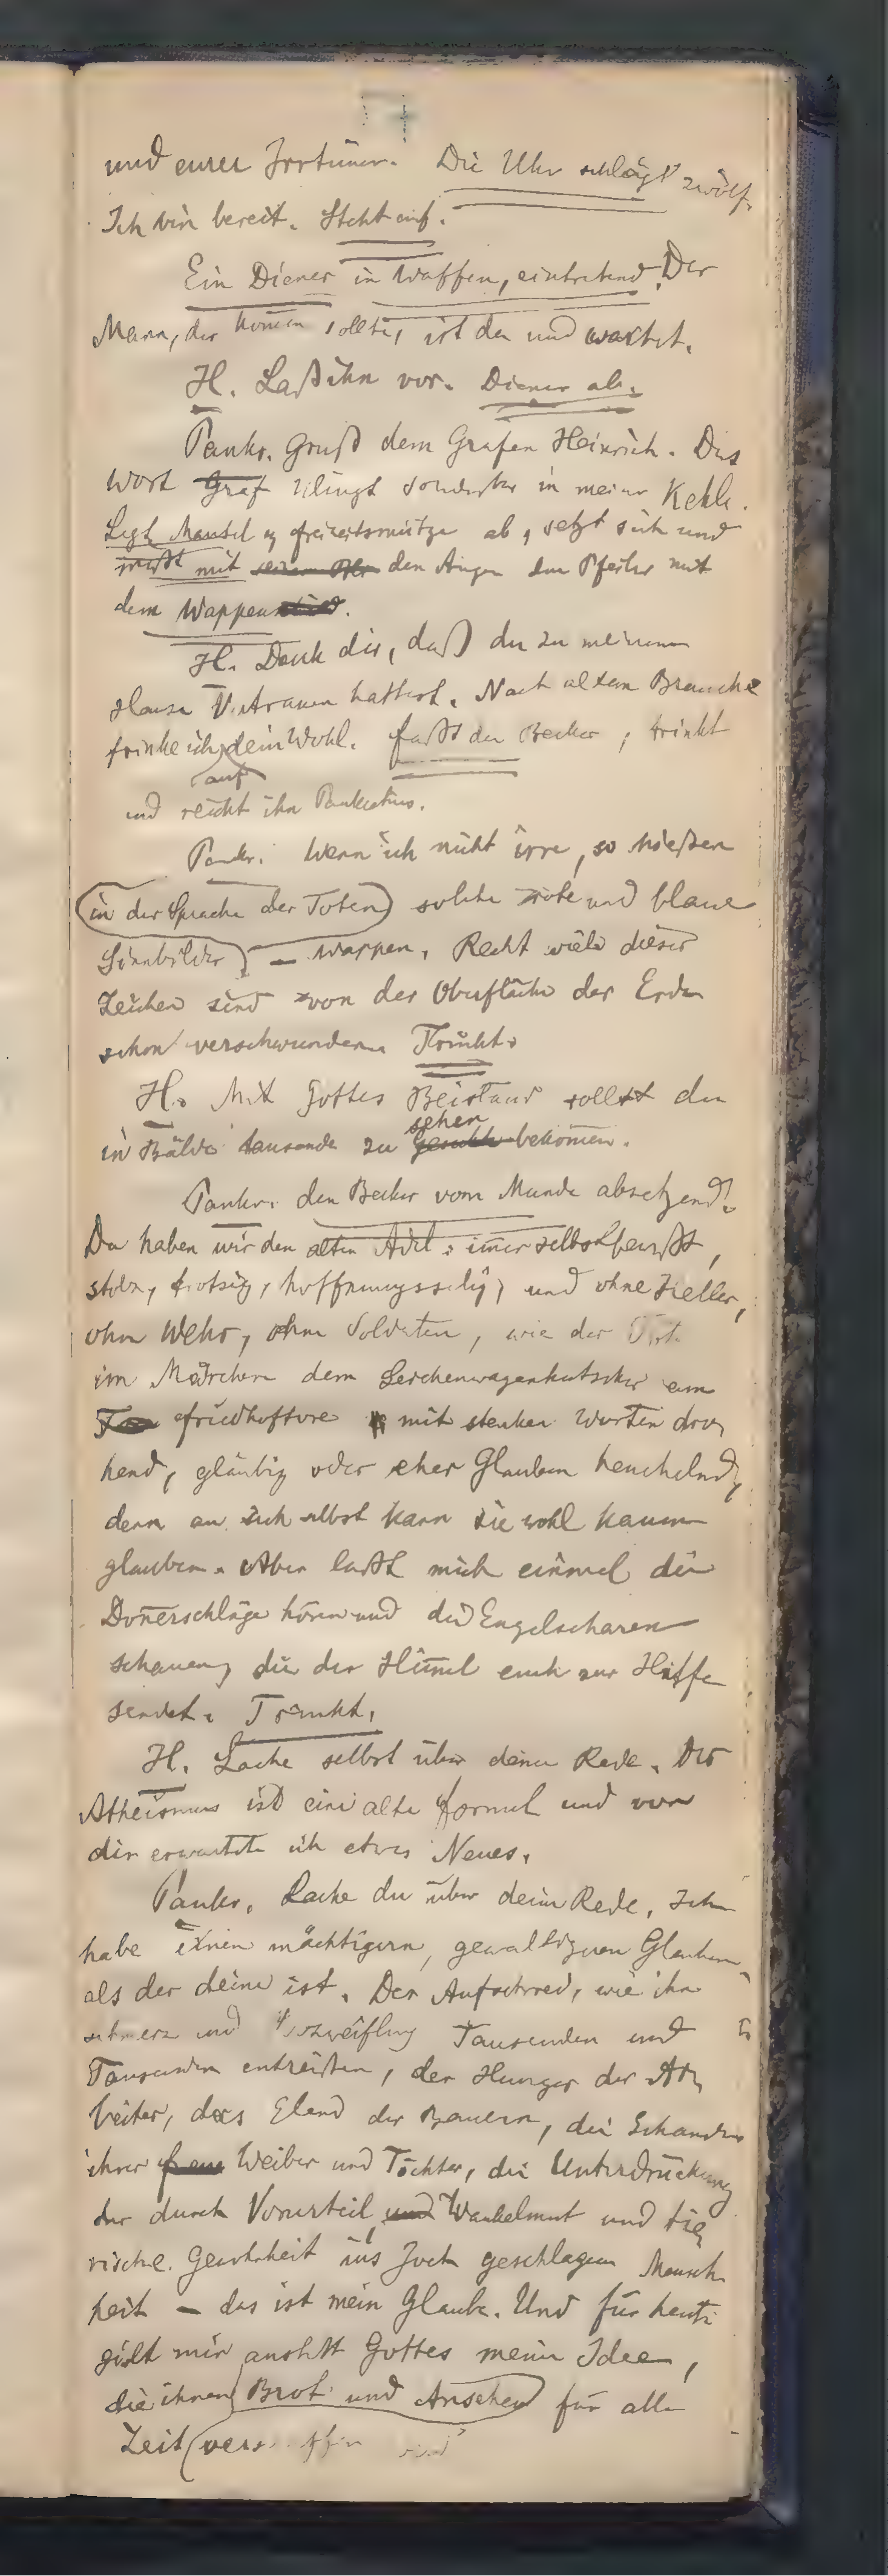 und eurer Irrtümer. Die Uhr schlägt zwölf.
Ich bin bereit. Steht auf.
Ein Diener in Waffen, eintretend: Der
Mann, der kom̅en sollte, ist da und wartet.
H. Laß ihn vor. Diener ab.
Pankr. Gruß dem Grafen Heinrich. Das
Wort Graf klingt sonderbar in meiner Kehle.
Legt Mantel u. Freiheitsmütze ab, setzt sich und
mißt mit den Augen den Pfeiler mit
dem Wappen.
H. Dank dir, daß du zu meinem
Hause Vertrauen hattest. Nach altem Brauche
trinke ich auf dein Wohl. Faßt den Becher, trinkt
und reicht ihn Pankratius.
Pankr. Wenn ich nicht irre, so hießen
in der Sprache der Toten solche rote und blaue
Sinnbilder – Wappen. Recht viele dieser
Zeichen sind von der Oberfläche der Erde
schon verschwunden. Trinkt.
H. Mit Gottes Beistand sollst du
in Bälde tausende zu sehen bekom̅en.
Pankr. den Becher vom Munde absetzend:
Da haben wir den alten Adel: im̅er selbstbewußt,
stolz, trotzig, hoffnungsselig, und ohne Heller,
ohne Wehr, ohne Soldaten, wie der Tote
im Märchen dem Leichenwagenkutscher am
Friedhoftore mit starken Worten dro-
hend, gläubig oder eher Glauben heuchelnd,
denn an sich selbst kann sie wohl kaum
glauben. Aber laßt mich einmal die
Don̅erschläge hören und die Engelscharen
schauen, die der Him̅el euch zur Hilfe
sendet. Trinkt.
H. Lache selbst über deine Rede. Der
Atheismus ist eine alte Formel und von
dir erwartete ich etwas Neues.
Pankr. Lache du über deine Rede. Ich
habe einen mächtigern, gewaltigeren Glauben,
als der deine ist. Der Aufschrei, wie ihn
Schmerz und Verzweiflung Tausenden und
Tausenden entreißen, der Hunger der Ar-
beiter, das Elend der Bauern, die Schande
ihrer Weiber und Töchter, die Unterdrückung
der durch Vorurteil, Wankelmut und tie-
rische Gewohnheit ins Joch geschlagenen Mensch-
heit – das ist mein Glaube. Und für heute
gilt mir anstatt Gottes meine Idee,
die ihnen Brot und Ansehen für alle
Zeit